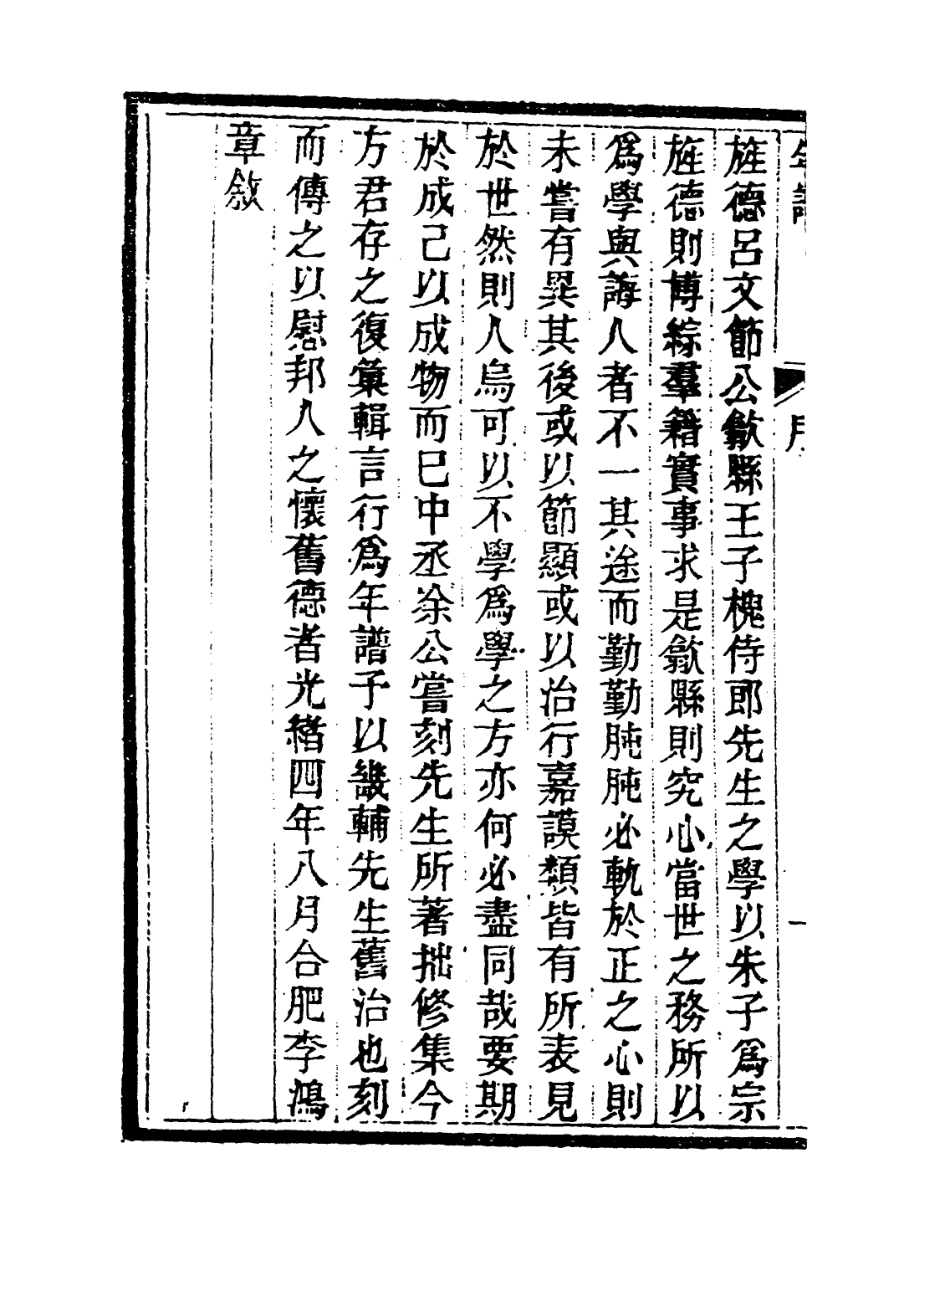 年譜 序 一
旌德呂文節公歙縣王子槐侍郎先生之學以朱子爲宗
旌德則博綜羣籍實事求是歙縣則究心當世之務所以
爲學與誨人者不一其途而勤勤肫肫必軌於正之心則
未嘗有異其後或以節顯或以治行嘉謨類皆有所表見
於世然則人烏可以不學爲學之方亦何必盡同哉要期
於成己以成物而巳中丞涂公嘗刻先生所著拙修集今
方君存之復彙輯言行爲年譜予以畿輔先生舊治也刻
而傳之以慰邦人之懷舊德者光緒四年八月合肥李鴻
章敘